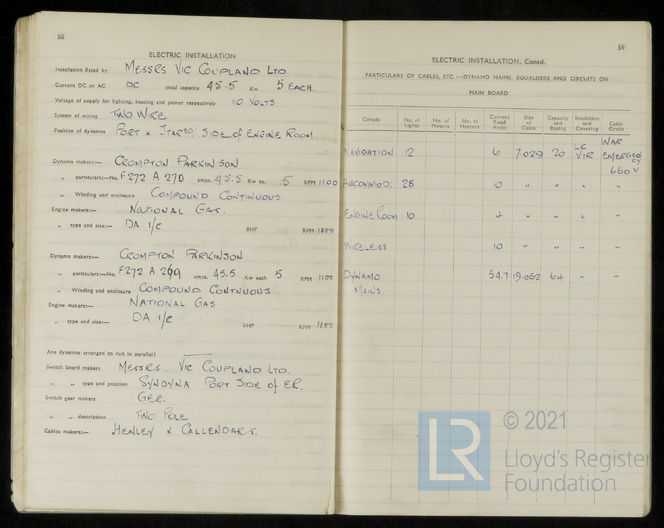 58
ELECTRIC INSTALLATION
Installation fitted by MESSRS VIC COUPLAND LTD
Current DC or AC DC total capacity 45.5 Kw 5 EACH.
Voltage of supply for lighting, heating and power respectively 110 VOLTS
System of wiring TWO WIRE
Position of dynamos PORT & STARBD/ SIDE OF ENGINE ROOM
Dynamo makers:— CROMPTON PARKINSON
„ particulars:—No. F272 A 270 amps. 45.5 Kw ea. 5 RPM 1100
„ Winding and enclosure COMPOUND CONTINUOUS
Engine makers:— NATIONAL GAS.
„ type and size:— DA 1/C BHP RPM
Dynamo makers:— CROMPTON PARKINSON
„ particulars:—No. F272 A 269 amps. 45.5 Kw each 5 RPM 1100
„ Winding and enclosure COMPOUND CONTNUOUS
Engine makers:— NATIONAL GAS
„ type and size:— DA 1/C BHP RPM
Are dynamos arranged to run in parallel?
Switch board makers MESSRS. VIC COUPLAND LTD.
„ „ type and position SYNDYNA PORT SIDE OF ER.
Switch gear makers GEC.
„ „ description TWO POLE
Cables makers:— HENLEY & CALLENDARS.
59
ELECTRIC INSTALLATION, Contd.
PARTICULARS OF CABLES, ETC.:—DYNAMO MAINS, EQUALISERS AND CIRCUITS ON
MAIN BOARD
Circuit No. of Lights No. of Heaters No. of Motors Current Read Amps Size of Cable Capacity and Rating Insulation and Covering Cable Grade
NAVIGATION 12 6 7.029 20 LC VIR WAR EMERGENCY 660 V
ACCOMMOD: 28 „ „ „ „
ENGINE ROOM 10 4 „ „ „ „
WIRELESS 10 „ „ „ „
DYNAMO MAINS. 54.7 19.052 64 „ „
LR © 2021
Lloyd's Register
Foundation